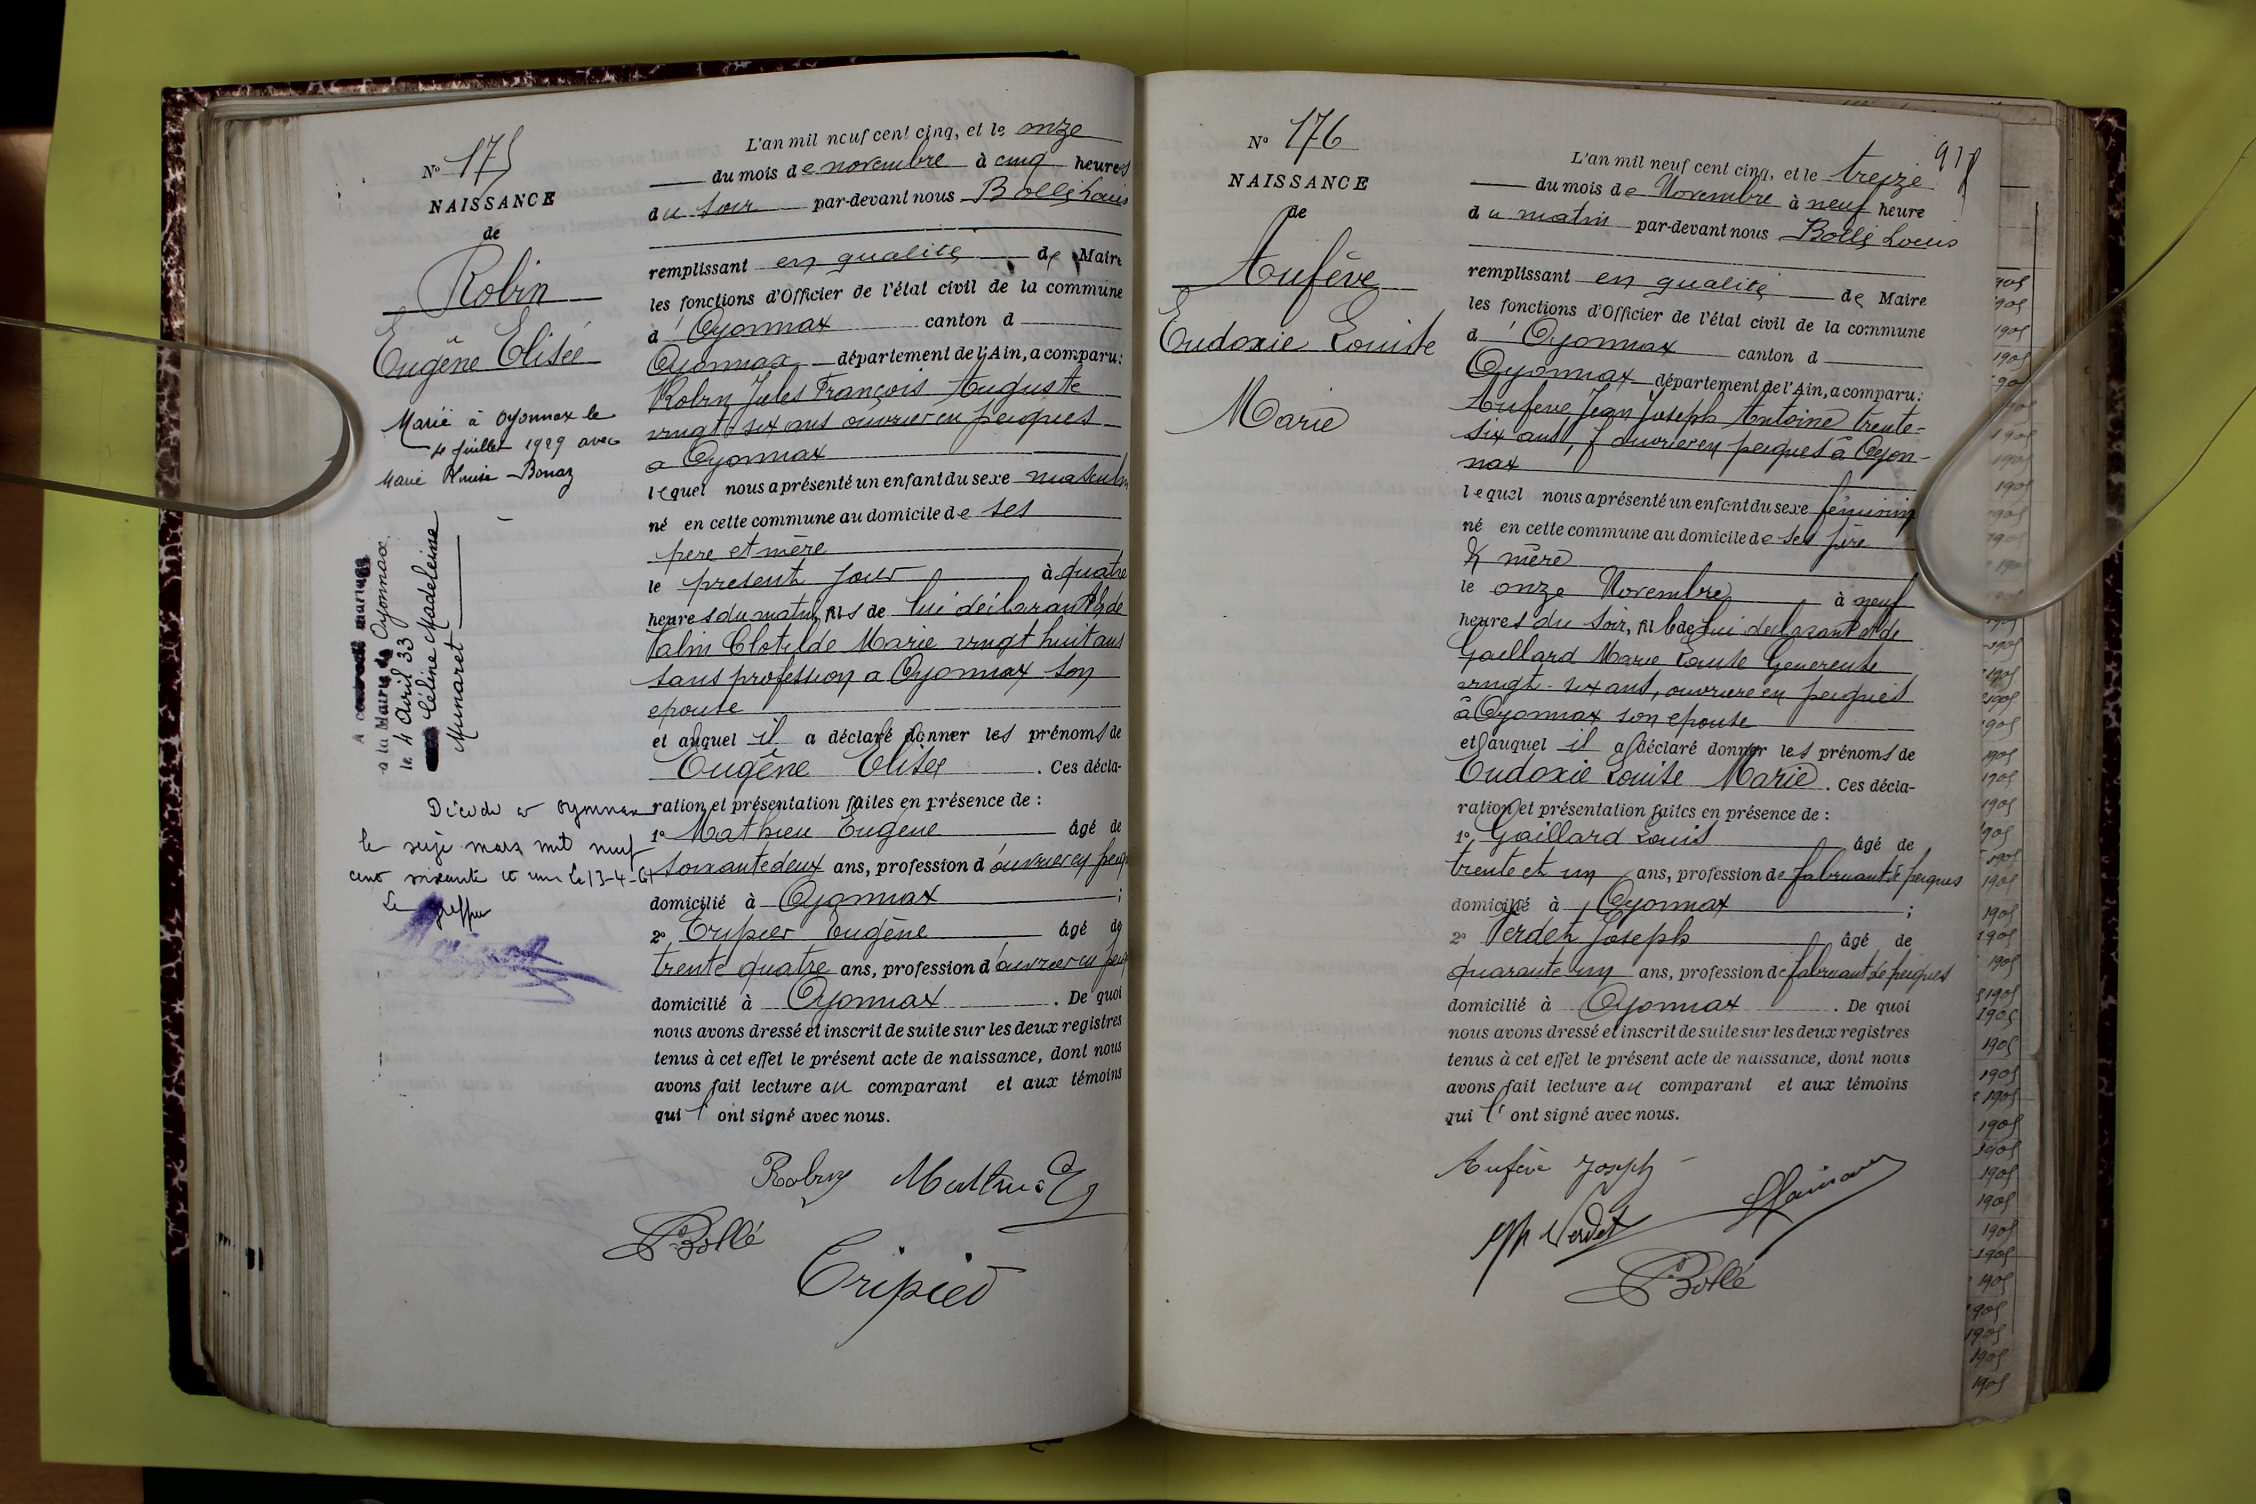 N° 175
NAISSANCE
de
Robin
Eugène Elisée
Marié à Oyonnax le
4 juillet 1929 avec
Marie Louise Bonaz
A contracté mariage
à la Mairie de Oyonnax
le 4 Avril 33
Céline Madeleine
Munaret
Décédé à Oyonnax
le seize mars mil neuf
cent soixante et un le 13-4-61
Le greffier
L'an mil neuf cent cinq, et le onze
du mois de novembre à cinq heures
du soir par-devant nous Bollé Louis
remplissant en qualité de Maire
les fonctions d'Officier de l'état civil de la commune
d'Oyonnax canton d
Oyonnax département de l'Ain, a comparu:
Robin Jules François Auguste
vingt-six ans ouvrier en peignes
a Oyonnax
lequel nous a présenté un enfant du sexe masculin
né en cette commune au domicile de ses
père et mère
le présent jour à quatre
heures du matin, fils de lui déclarant & de
Clotilde Marie vingt huit ans
sans profession a Oyonnax son
epouse
et auquel il a déclaré donner les prénoms de
Eugène Elisée. Ces décla-
ration et présentation faites en présence de:
1° Mathieu Eugène âgé de
soixante deux ans, profession d'ouvrier en peig
domicilié à Oyonnax;
2° Tripier Eugène âgé de
trente quatre ans, profession d'ouvrier en peig
domicilié à Oyonnax. De quoi
nous avons dressé et inscrit de suite sur les deux registres
tenus à cet effet le présent acte de naissance, dont nous
avons fait lecture au comparant et aux témoins
qui l'ont signé avec nous.
Robin Mathieu
Bollé
Tripier
N° 176
NAISSANCE
de
Aufève
Eudoxie Louise
Marie
L'an mil neuf cent cinq, et le treize
du mois de Novembre à neuf heure
du matin par-devant nous Bollé Louis
remplissant en qualité de Maire
les fonctions d'Officier de l'état civil de la commune
d'Oyonnax canton d
Oyonnax département de l'Ain, a comparu:
Aufève Jean Joseph Antoine trente-
six ans, ouvrier en peignes à Oyon-
nax
lequel nous a présenté un enfant du sexe féminin
né en cette commune au domicile de ses père
& mère
le onze Novembre à neuf
heures du soir, fille de lui déclarant et de
Gaillard Marie Louise
vingt-six ans, ouvrière en peignes
à Oyonnax son epouse
et auquel il a déclaré donner les prénoms de
Eudoxie Louise Marie. Ces décla-
ration et présentation faites en présence de:
1° Gaillard Louis âgé de
trente et un ans, profession de fabricant de peignes
domicilié à Oyonnax;
2° Verdet Joseph âgé de
quarante un ans, profession de fabricant de peignes
domicilié à Oyonnax. De quoi
nous avons dressé et inscrit de suite sur les deux registres
tenus à cet effet le présent acte de naissance, dont nous
avons fait lecture au comparant et aux témoins
qui l'ont signé avec nous.
Aufève Joseph
Verdet
Bollé